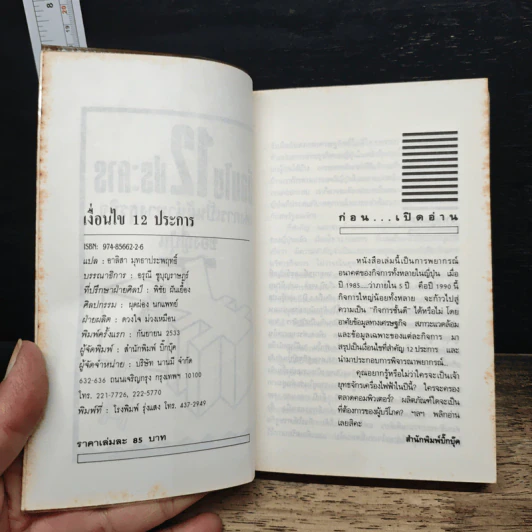 เงื่อนไข 12 ประการ
ISBN: 974-85662-2-6
แปล : อาลิสา มุทธาประพฤทธิ์
บรรณาธิการ : อรุณี ชูบุญราษฎร์
ที่ปรึกษาฝ่ายศิลป์ : พิชัย ผันเยื้อง
ศิลปกรรม : ผุดผ่อง นกแพทย์
ฝ่ายผลิต : ดวงใจ ม่วงเหมือน
พิมพ์ครั้งแรก : กันยายน 2533
ผู้จัดพิมพ์ : สำนักพิมพ์ บิ๊กบุ๊ค
ผู้จัดจำหน่าย : บริษัท นานมี จำกัด
632-636 ถนนเจริญกรุง กรุงเทพฯ 10100
โทร. 221-7726, 222-5770
พิมพ์ที่ : โรงพิมพ์ รุ่งแสง โทร. 437-2949
ราคาเล่มละ 85 บาท
ก่อน...เปิดอ่าน
หนังสือเล่มนี้เป็นการพยากรณ์
อนาคตของกิจการทั้งหลายในญี่ปุ่น เมื่อ
ปี 1985...ว่าภายใน 5 ปี คือปี 1990 นี้
กิจการใหญ่น้อยทั้งหลาย จะก้าวไปสู่
ความเป็น "กิจการชั้นดี" ได้หรือไม่ โดย
อาศัยข้อมูลทางเศรษฐกิจ สภาวะแวดล้อม
และข้อมูลเฉพาะของแต่ละกิจการ มา
สรุปเป็นเงื่อนไขที่สำคัญ 12 ประการ และ
นำมาประกอบการพิจารณาพยากรณ์
คุณอยากรู้หรือไม่ว่าใครจะเป็นเจ้า
ยุทธจักรเครื่องไฟฟ้าในปีนี้? ใครจะครอง
ตลาดคอมพิวเตอร์? ผลิตภัณฑ์ใดจะเป็น
ที่ต้องการของผู้บริโภค? ฯลฯ พลิกอ่าน
เลยสิคะ
สำนักพิมพ์บิ๊กบุ๊ค